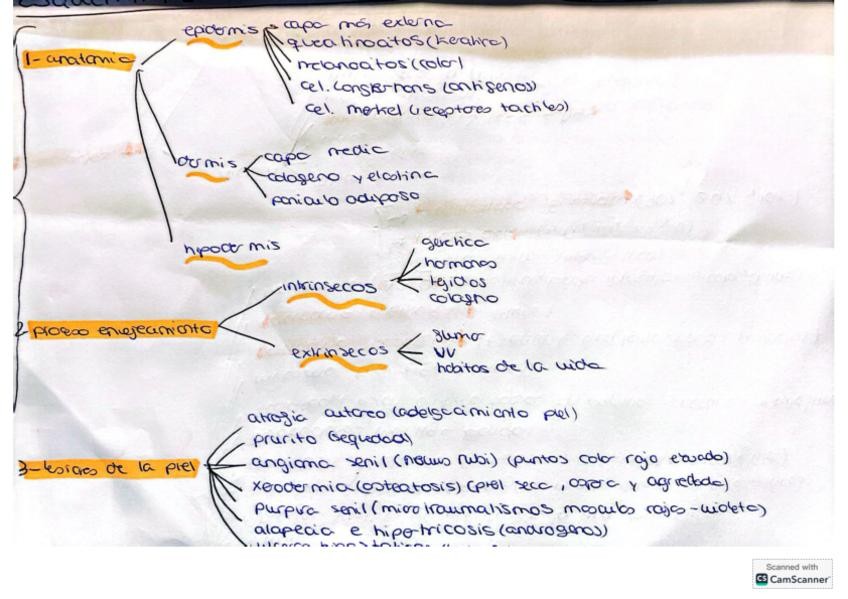 1- anatomia
epidermis
capa más externa
queatinocitos (keatina)
melanocitos (color)
cel. Langerhans (antígenos)
cel. merkel (receptores tactiles)
dermis
capa media
colageno y elastina
paniculo adiposo
hipodermis
2 proceso envejecimiento
intrinsecos
genetica
hormonas
tejidos
colageno
extrinsecos
humo
UV
habitos de la vida
3- lesiones de la piel
atrofia cutanea (adelgacimiento piel)
prurito (sequedad)
angioma senil (nevus rubi) (puntos color rojo elevado)
xerodermia (esteatosis) (piel seca, aspera y agrietada)
purpura senil (microtraumatismos mosculo rojos-violeta)
alapecia e hipotricosis (androgenos)
Scanned with
CS CamScanner